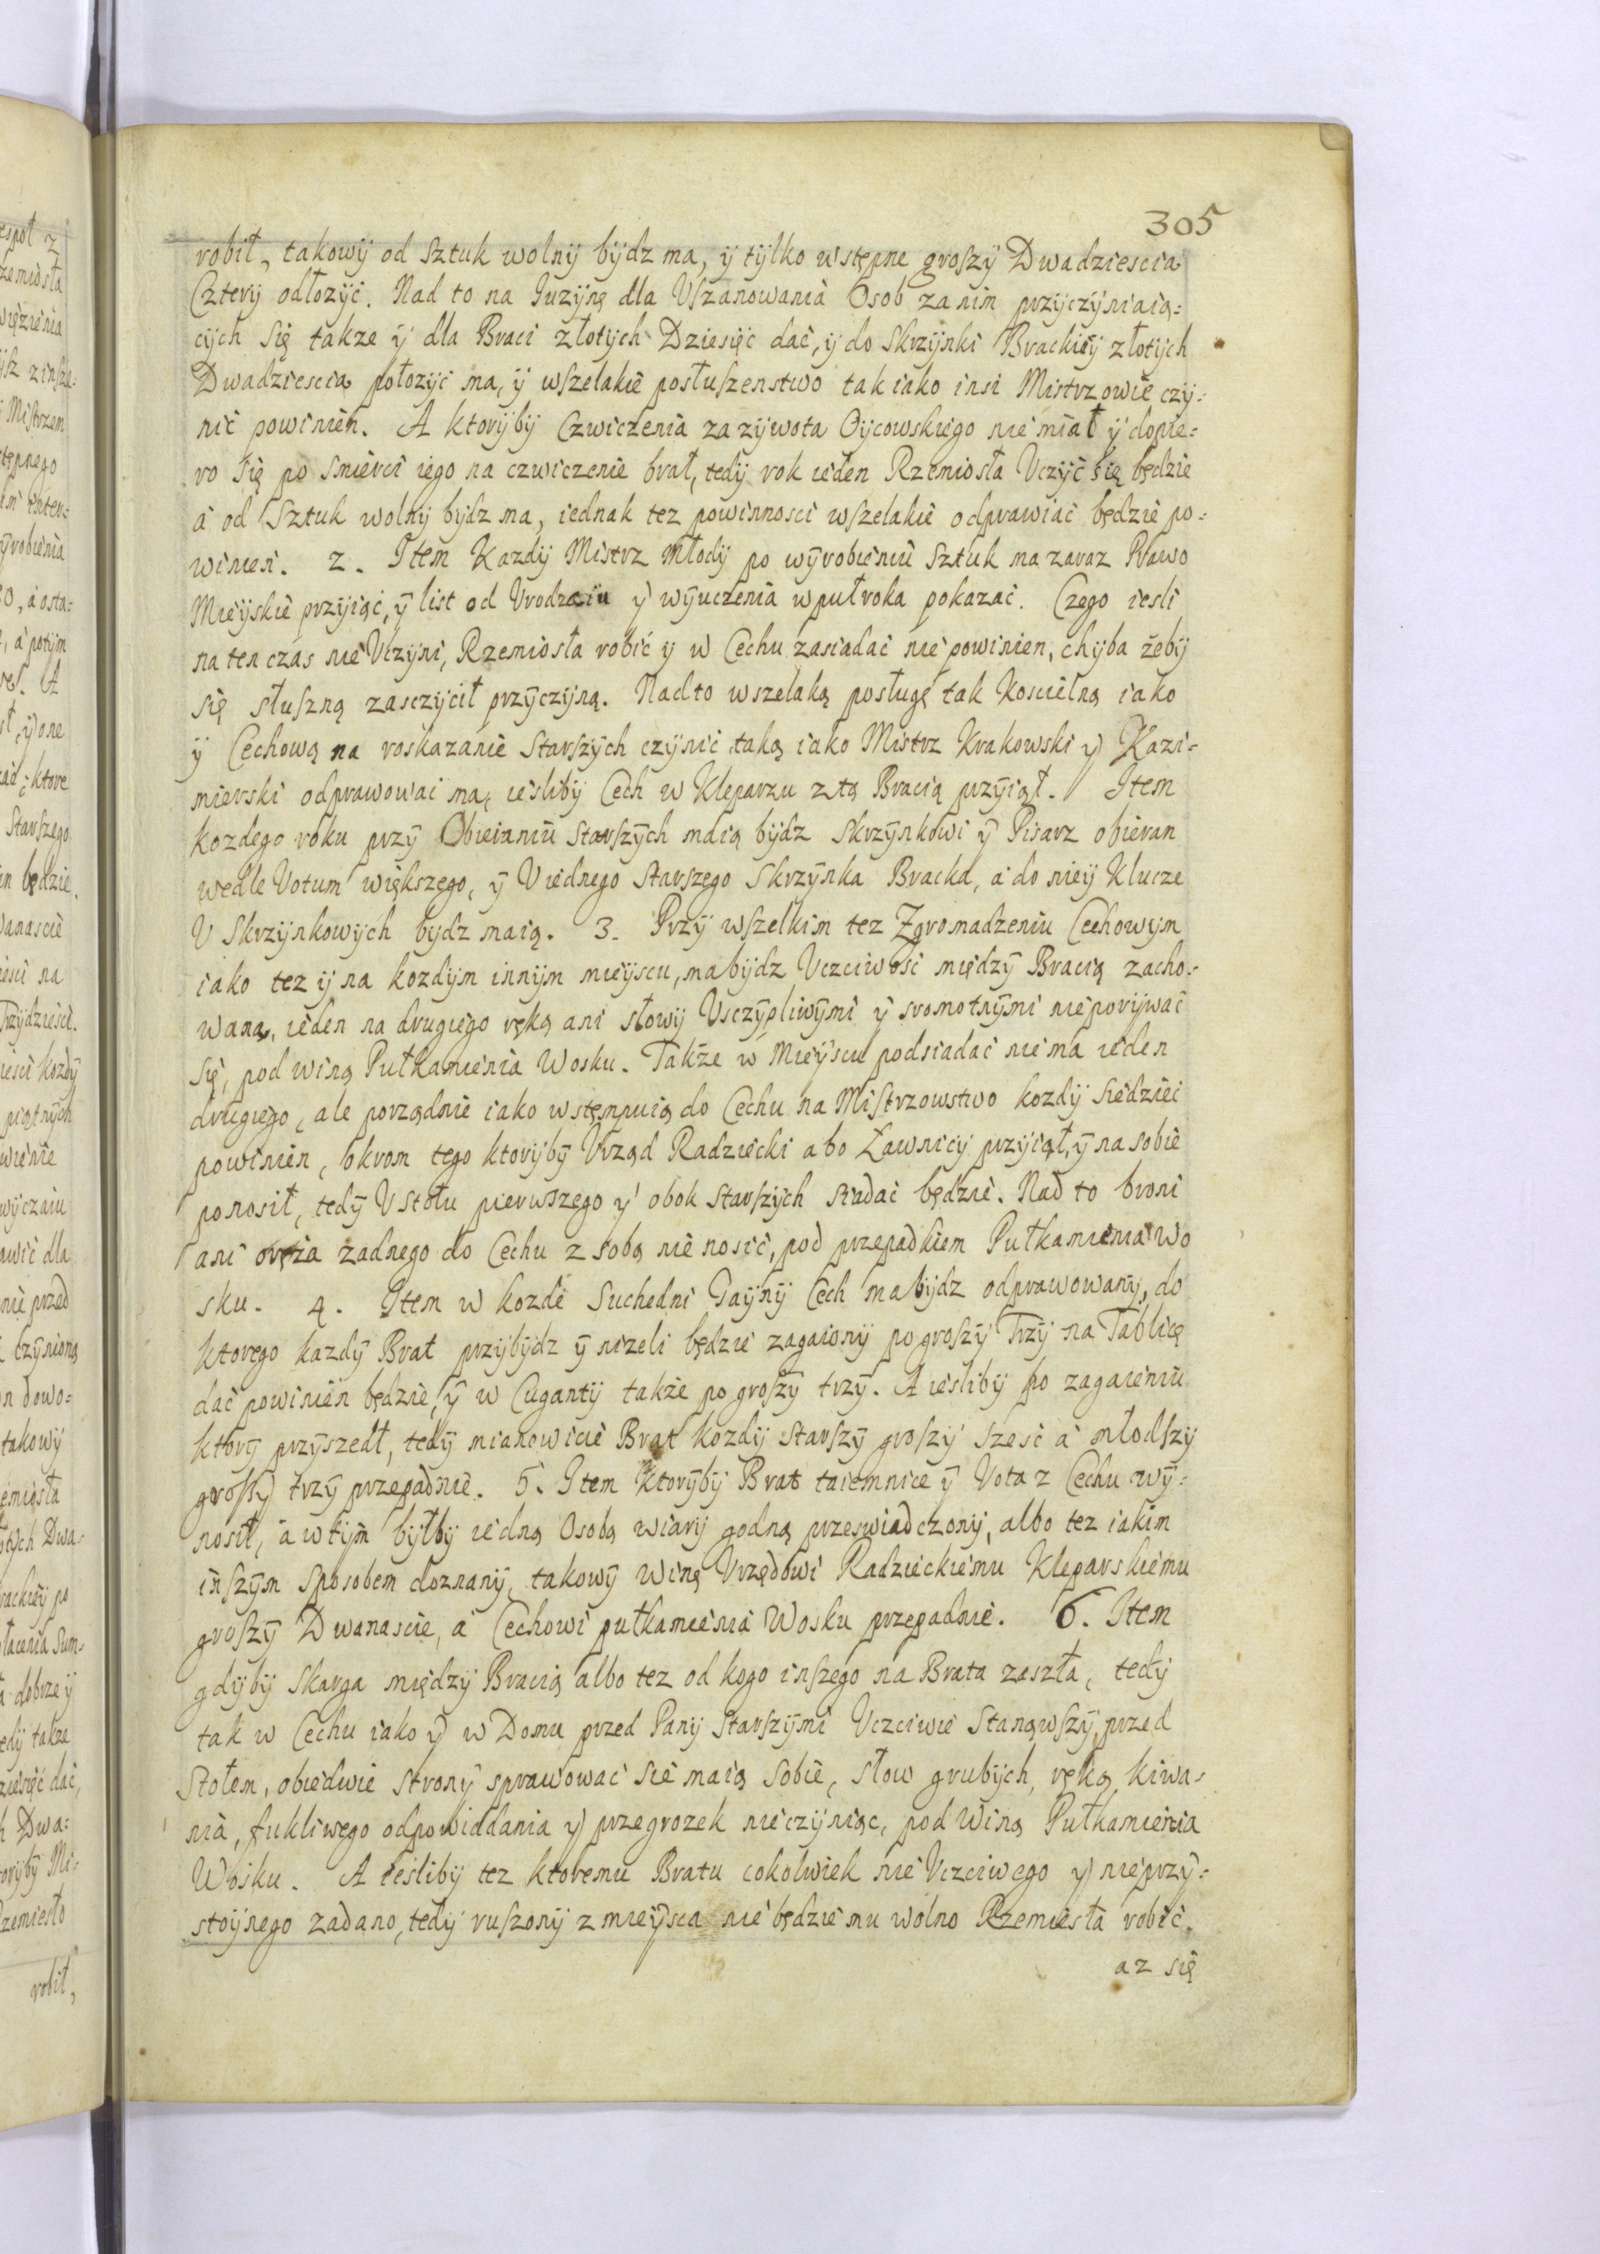 305
robił, takowy od Sztuk wolny bydz ma, y tylko wstępne groszy Dwadziescia
Cztery odłozyć. Nad to na Iuzynę dla Uszanowania Osob za nim przyczyniaią-
cych się takze y dla Braci złotych Dziesięc dać, y do Skrzynki Brackiey złotych
Dwadziescia połozyc ma, y wszelakie posłuszenstwo tak iako insi Mistrzowie czy-
nić powinien. A ktoryby Czwiczenia za zywota Oycowskiego nie miał y dopie-
ro się po smierci iego na czwiczenie brał, tedy rok ieden Rzemiosła Uczyć się będzie
a od Sztuk wolny bydz ma, iednak tez powinnosci wszelakie odprawiac będzie po-
winien. 2. Item Kazdy Mistrz młody po wyrobieniu Sztuk ma zaraz Prawo
Mieyskie przyiąć, y list od Urodzaiu y wyuczenia w puł roka pokazać. Czego iesli
na ten czas nie Uczyni, Rzemiosła robić y w Cechu zasiadać nie powinien, chyba żeby
się słuszną zasczycił przyczyną. Nadto wszelaką posługę tak Koscielną iako
y Cechową na roskazanie Starszych czynić taką iako Mistrz Krakowski y Kazi-
mierski odprawowac ma, iesliby Cech w Kleparzu z tą Bracią przyiął. Item
kozdego roku przy Obieraniu Starszych maią bydz Skrzynkowi y Pisarz obieran
wedle Votum większego, y U iednego Starszego Skrzynka Bracka, a do niey Klucze
U Skrzynkowych bydz maią. 3. Przy wszelkim tez Zgromadzeniu Cechowym
iako tez y na kozdym innym mieyscu, ma bydz Uczciwość między Bracią zacho-
wana, ieden na drugiego ręką ani słowy Usczypliwymi y sromotnymi nie porywać
się, pod winą Pułkamienia Wosku. Także w Mieyscu podsiadać nie ma ieden
drugiego, ale porządnie iako wstępuią do Cechu na Mistrzowstwo kozdy siedziec
powinien, okrom tego ktoryby Urząd Radziecki abo Ławnicy przyiął, y na sobie
ponosił, tedy U stołu pierwszego y obok Starszych siadać będzie. Nad to broni
ani oręża zadnego do Cechu z sobą nie nosić, pod przepadkiem Pułkamienia Wo
sku. 4. Item w kozde Suchedni Gayny Cech ma bydz odprawowany, do
ktorego kazdy Brat przybydz y nizeli będzie zagaiony po groszy Trzy na Tablicę
dać powinien będzie, y w Cuganty także po groszy trzy. A iesliby po zagaieniu
ktory przyszedł, tedy mianowicie Brat kozdy Starszy groszy szesc a młodszy
groszy trzy przepadnie. 5. Item ktoryby Brat taiemnice y Vota z Cechu wy-
nosił, a w tym byłby iedną Osobą wiary godną przeswiadczony, albo tez iakim
inszym sposobem doznany, takowy winę Urzędowi Radzieckiemu Kleparskiemu
groszy Dwanascie, a Cechowi pułkamienia Wosku przepadnie. 6. Item
gdyby Skarga między Bracią albo tez od kogo inszego na Brata zaszła, tedy
tak w Cechu iako y w Domu przed Pany Starszymi Uczciwie Stanąwszy, przed
Stołem, obiedwie strony sprawować sie maią sobie, słow grubych, ręką kiwa-
nia, fukliwego odpowiadania y przegrozek nie czyniąc, pod Winą Pułkamienia
Wosku. A iesliby tez ktoremu Bratu cokolwiek nie Uczciwego y nieprzy-
stoynego zadano, tedy ruszony z mieysca nie będzie mu wolno Rzemiesła robić,
az się